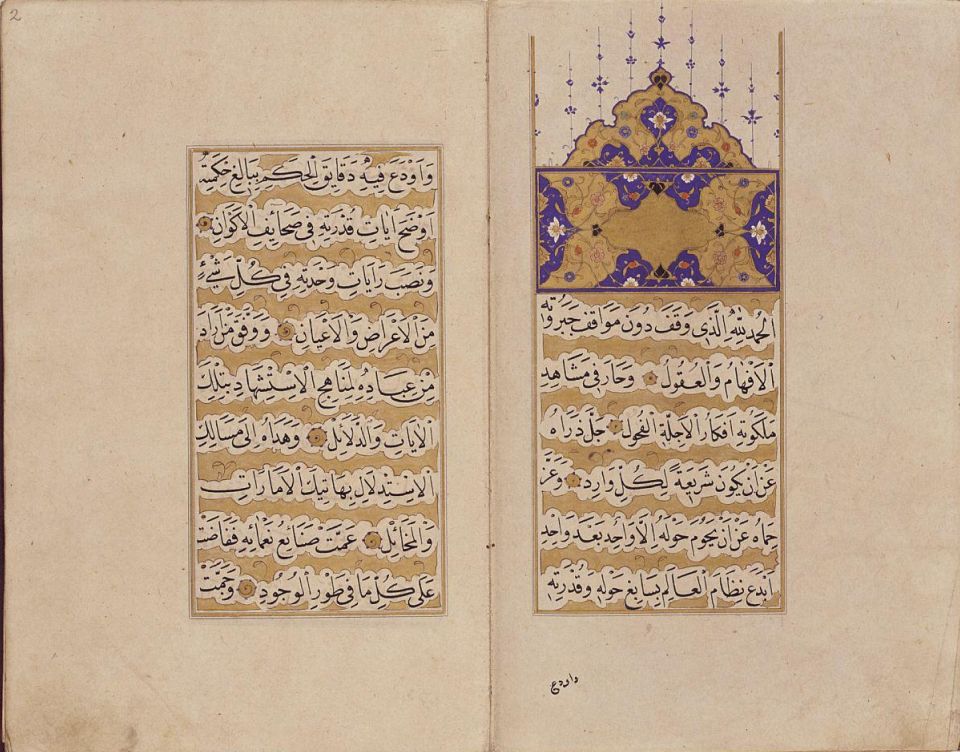 الحمد لله الذي وقف دون مواقف جبروته
الافهام والعقول وحار في مشاهد
ملكوته افكار الاجلة الفحول جل ذراه
عز ان يكون شريعة لكل وارد وعز
حماه عز ان يحوم حوله الا واحد بعد واحد
ابدع نظام العالم بسابغ حوله وقدرته
واودع
2
واودع فيه دقايق الحكم ببالغ حكمته
اوضح ايات قدرته في صحائف الاكوان
ونصب رايات وحدته في كل شيء
من الاعراض والاعيان ووفق من اراد
من عباده لمناهج الاستشهاد بتلك
الايات والدلائل وهداه الى مسالك
الاستدلال بهاتيك الامارات
والمخائل عمت صنائع نعمائه ففاضت
على كل ما في طور الوجود وجمت